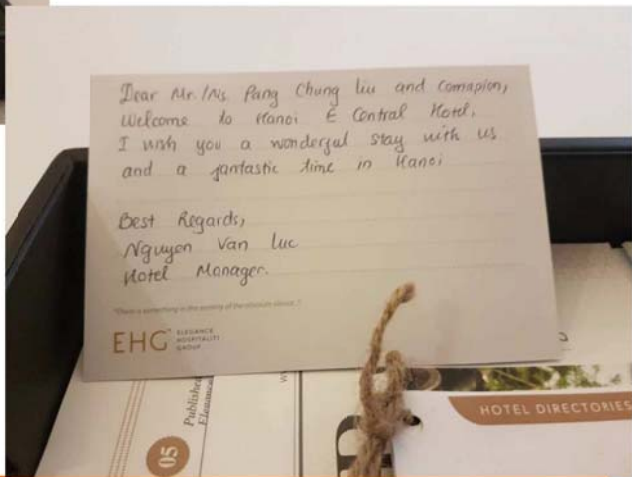 Dear Mr./Ms. Pang Chung Liu and Comapion,
Welcome to Hanoi E Central Hotel,
I wish you a wonderful stay with us
and a fantastic time in Hanoi
Best Regards,
Nguyen Van Luc
Hotel Manager.
EHG
ELEGANCE
HOSPITALITY
GROUP
05
Published
HOTEL DIRECTORIES